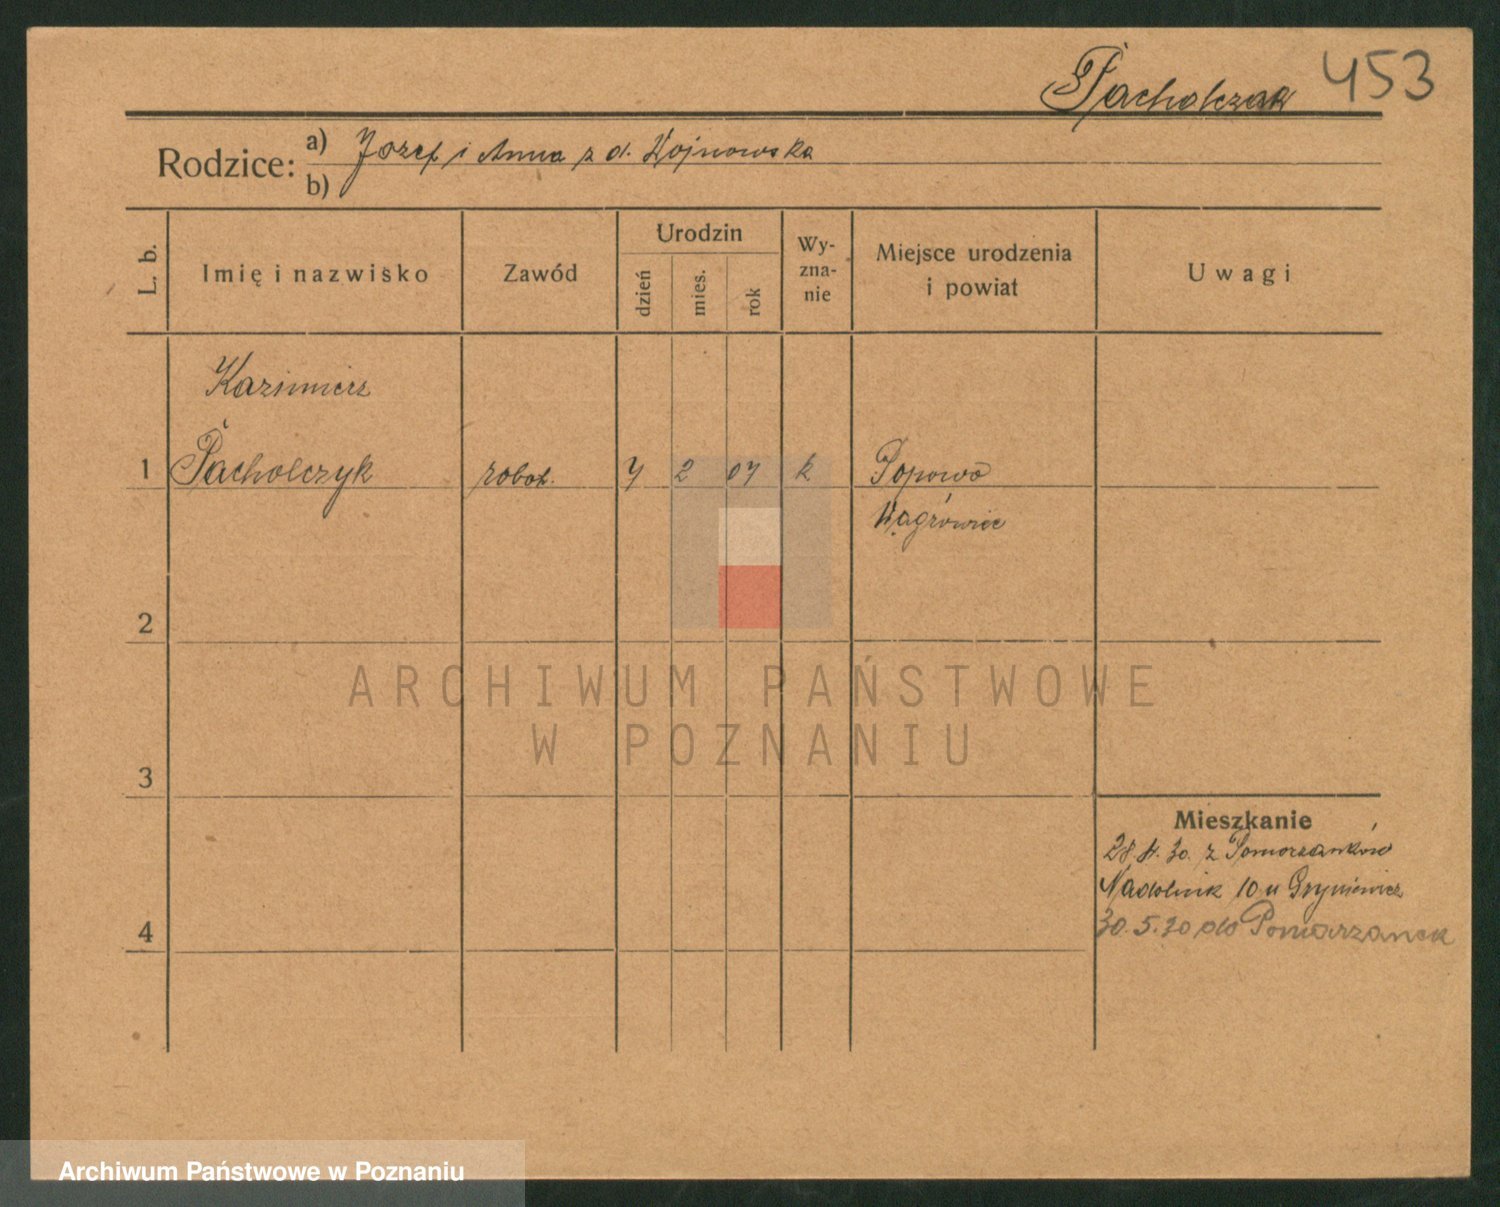 Pacholczak 453
Rodzice: a) Józef i Anna z d. Wojnowska
b)
L. b. Imię i nazwisko Zawód Urodzin dzień mies. rok Wy-zna-nie Miejsce urodzenia i powiat Uwagi
Kazimierz
1 Pacholczyk robot. 7 2 07 k Popowo
Wągrówiec
2
3
4
Mieszkanie
30. z Pomorzanków
Nadolnik 10 u Gryniewicz
30.5.30 do Pomarzanek
ARCHIWUM PAŃSTWOWE
W POZNANIU
Archiwum Państwowe w Poznaniu